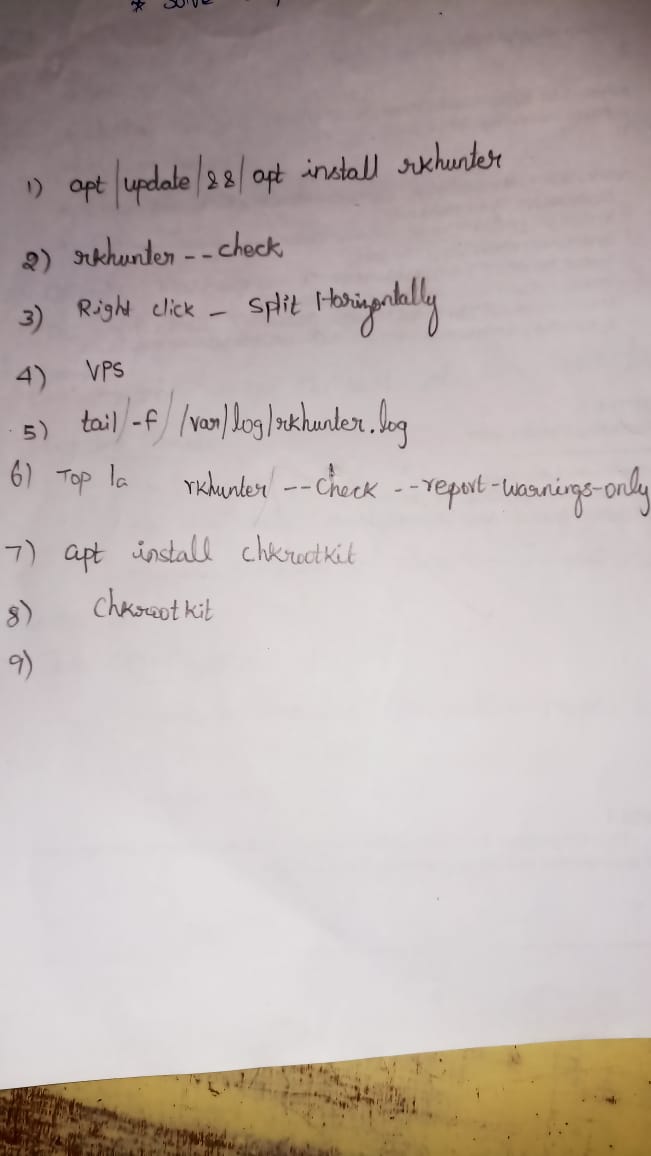 * Solve
1) apt/update/&&/apt install rkhunter
2) rkhunter --check
3) Right click - Split Horizontally
4) VPS
5) tail/-f/ /var/log/rkhunter.log
6) Top la rkhunter/ --check --report-warnings-only
7) apt install chkrootkit
8) Chkrootkit
9)